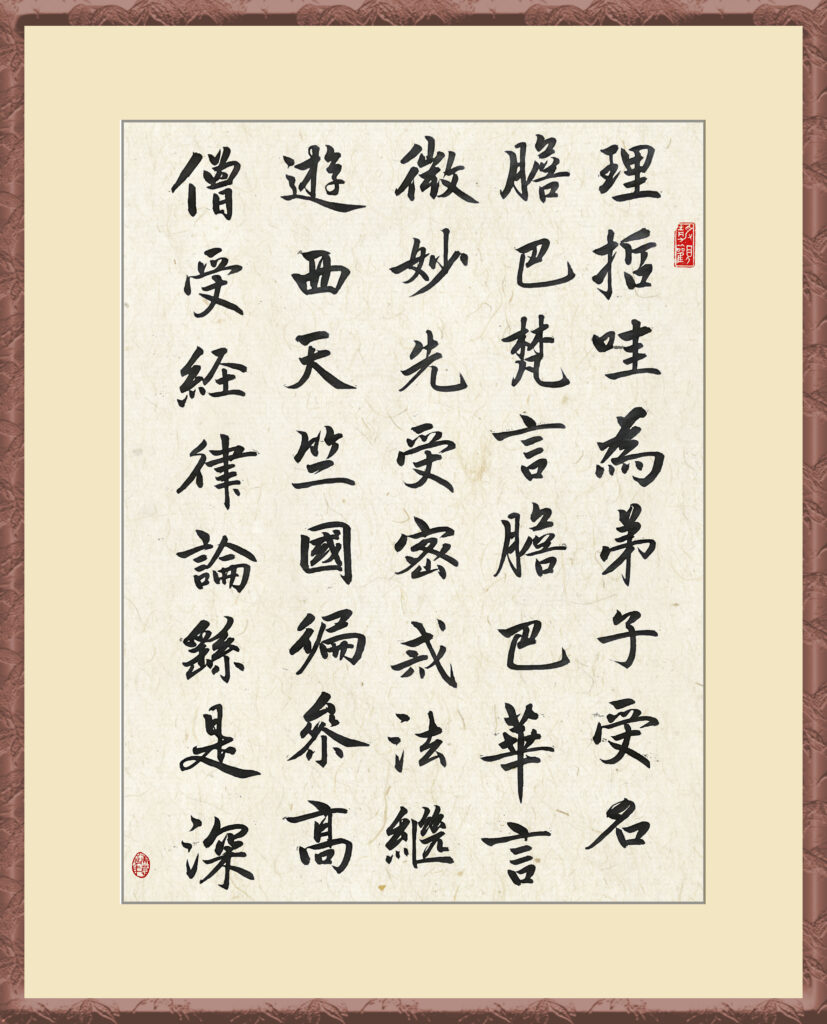 理哲哇為弟子受名
膽巴梵言膽巴華言
微妙先受密戒法繼
遊西天竺國徧參高
僧受經律論繇是深